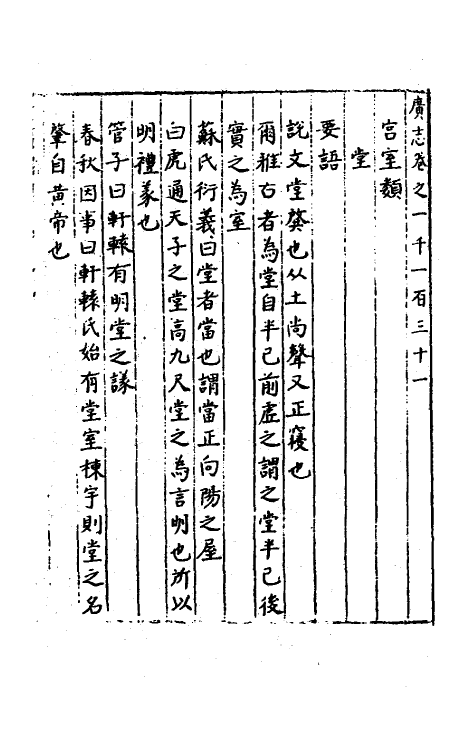 廣志卷之一千一百三十一
宫室類
堂
要語
說文堂殿也从土尚聲又正寢也
爾雅古者為堂自半已前虛之謂之堂半已後
實之為室
蘇氏衍義曰堂者當也謂當正向陽之屋
白虎通天子之堂高九尺堂之為言明也所以
明禮義也
管子曰軒轅有明堂之議
春秋因事曰軒轅氏始有堂室棟宇則堂之名
肇自黄帝也